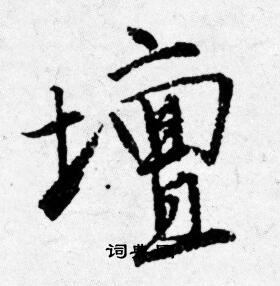 壇
词典网